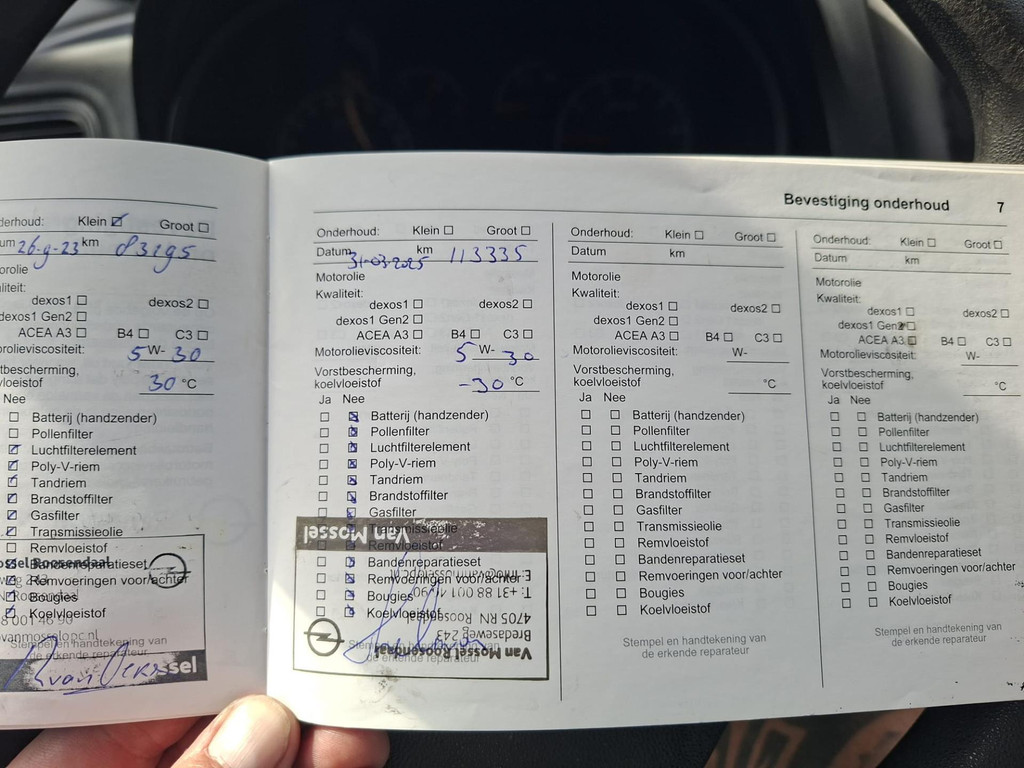 Bevestiging onderhoud 7
derhoud: Klein ☑ Groot ☐
um 26-9-23 km 83195
orolie
liteit:
dexos1 ☐ dexos2 ☐
dexos1 Gen2 ☐
ACEA A3 ☐ B4 ☐ C3 ☐
orolieviscositeit: 5 W- 30
stbescherming,
lvloeistof 30 °C
Nee
☐ Batterij (handzender)
☐ Pollenfilter
☑ Luchtfilterelement
☑ Poly-V-riem
☑ Tandriem
☑ Brandstoffilter
☑ Gasfilter
☑ Transmissieolie
☐ Remvloeistof
☑ Bandenreparatieset
☑ Remvoeringen voor/achter
☑ Bougies
☑ Koelvloeistof
Stempel en handtekening van
de erkende reparateur
ssel Roosendaal
weg 243
N Roosendaal
8 001 46 90
vanmosselopc.nl
ssel
Onderhoud: Klein ☐ Groot ☐
Datum 31-03-2025 km 113335
Motorolie
Kwaliteit:
dexos1 ☐ dexos2 ☐
dexos1 Gen2 ☐
ACEA A3 ☐ B4 ☐ C3 ☐
Motorolieviscositeit: 5 W- 30
Vorstbescherming,
koelvloeistof -30 °C
Ja Nee
☐ ☒ Batterij (handzender)
☐ ☒ Pollenfilter
☐ ☒ Luchtfilterelement
☐ ☒ Poly-V-riem
☐ ☒ Tandriem
☐ ☒ Brandstoffilter
☐ ☒ Gasfilter
☐ ☒ Transmissieolie
☐ ☒ Remvloeistof
☐ ☒ Bandenreparatieset
☐ ☒ Remvoeringen voor/achter
☐ ☒ Bougies
☐ ☒ Koelvloeistof
Stempel en handtekening van
de erkende reparateur
Van Mossel
Van Mossel Roosendaal
Bredaseweg 243
4705 RN Roosendaal
Onderhoud: Klein ☐ Groot ☐
Datum km
Motorolie
Kwaliteit:
dexos1 ☐ dexos2 ☐
dexos1 Gen2 ☐
ACEA A3 ☐ B4 ☐ C3 ☐
Motorolieviscositeit: W-
Vorstbescherming,
koelvloeistof °C
Ja Nee
☐ ☐ Batterij (handzender)
☐ ☐ Pollenfilter
☐ ☐ Luchtfilterelement
☐ ☐ Poly-V-riem
☐ ☐ Tandriem
☐ ☐ Brandstoffilter
☐ ☐ Gasfilter
☐ ☐ Transmissieolie
☐ ☐ Remvloeistof
☐ ☐ Bandenreparatieset
☐ ☐ Remvoeringen voor/achter
☐ ☐ Bougies
☐ ☐ Koelvloeistof
Stempel en handtekening van
de erkende reparateur
Onderhoud: Klein ☐ Groot ☐
Datum km
Motorolie
Kwaliteit:
dexos1 ☐ dexos2 ☐
dexos1 Gen2 ☐
ACEA A3 ☐ B4 ☐ C3 ☐
Motorolieviscositeit: W-
Vorstbescherming,
koelvloeistof °C
Ja Nee
☐ ☐ Batterij (handzender)
☐ ☐ Pollenfilter
☐ ☐ Luchtfilterelement
☐ ☐ Poly-V-riem
☐ ☐ Tandriem
☐ ☐ Brandstoffilter
☐ ☐ Gasfilter
☐ ☐ Transmissieolie
☐ ☐ Remvloeistof
☐ ☐ Bandenreparatieset
☐ ☐ Remvoeringen voor/achter
☐ ☐ Bougies
☐ ☐ Koelvloeistof
Stempel en handtekening van
de erkende reparateur